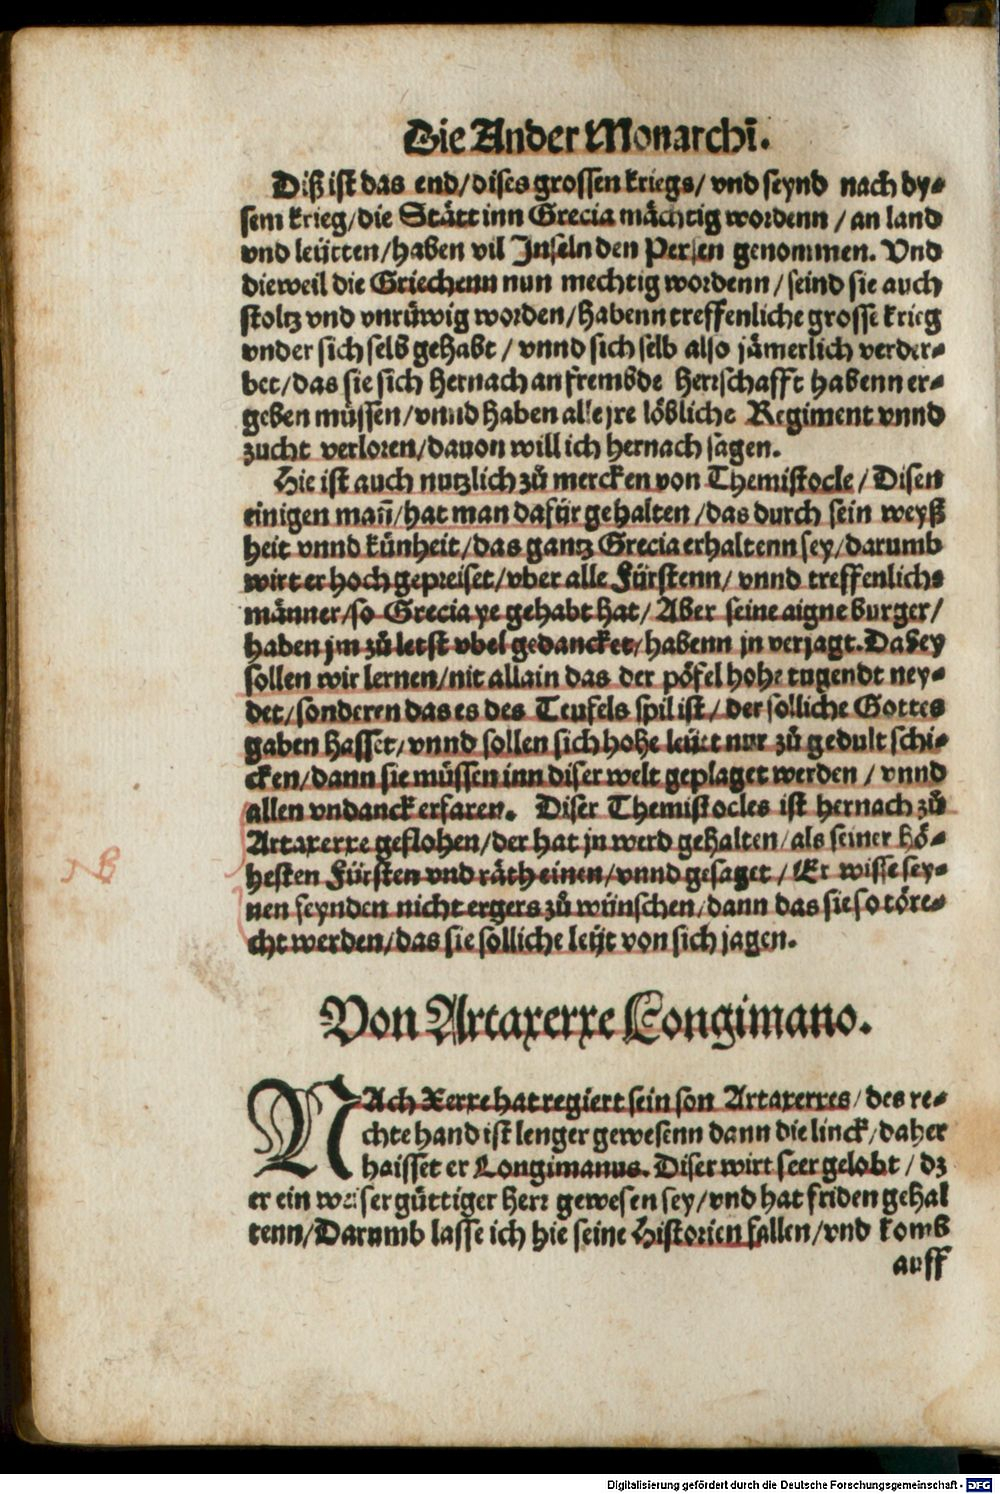 Die Ander Monarchī.
Diß ist das end/dises grossen kriegs/ vnd seynd nach dy⸗
sem krieg/die Stätt inn Grecia mächtig wordenn / an land
vnd leütten/haben vil Inseln den Persen genommen. Vnd
dieweil die Griechenn nun mechtig wordenn / seind sie auch
stoltz vnd vnrüwig worden/habenn treffenliche grosse krieg
vnder sich selb gehabt / vnnd sich selb also jämerlich verder⸗
bet/das sie sich hernach an frembde herrschafft habenn er⸗
geben müssen/vnnd haben alle jre löbliche Regiment vnnd
zucht verloren/dauon will ich hernach sagen.
Hie ist auch nutzlich zů mercken von Themistocle / Disen
einigen mañ/hat man dafür gehalten /das durch sein weyß
heit vnnd künheit/das gantz Grecia erhaltenn sey/darumb
wirt er hoch gepreiset/vber alle Fürstenn/ vnnd treffenliche
männer/so Grecia ye gehabt hat/ Aber seine aigne burger/
haben jm zů letst vbel gedancket/habenn jn verjagt. Dabey
sollen wir lernen/nit allain das der pöfel hohe tugendt ney⸗
det/sonderen das es des Teufels spil ist/ der solliche Gottes
gaben hasset/vnnd sollen sich hohe leüt nur zů gedult schi⸗
cken/dann sie müssen inn diser welt geplaget werden / vnnd
allen vndanck erfaren. Diser Themistocles ist hernach zů
Artaxerxe geflohen/der hat jn werd gehalten/als seiner hö⸗
hesten Fürsten vnd räth einen/vnnd gesaget / Er wisse sey⸗
NB
nen feynden nicht ergers zů wünschen/dann das sie so töre⸗
cht werden/das sie solliche leüt von sich jagen.
Von Artaxerxe Longimano.
NAch Xerxe hat regiert sein son Artaxerxes/ des re⸗
chte hand ist lenger gewesenn dann die linck/daher
haisset er Longimanus. Diser wirt seer gelobt / dz
er ein weiser güttiger herr gewesen sey/vnd hat friden gehal
tenn/Darumb lasse ich hie seine Historien fallen/vnd komb
auff
Digitalisierung gefördert durch die Deutsche Forschungsgemeinschaft - DFG